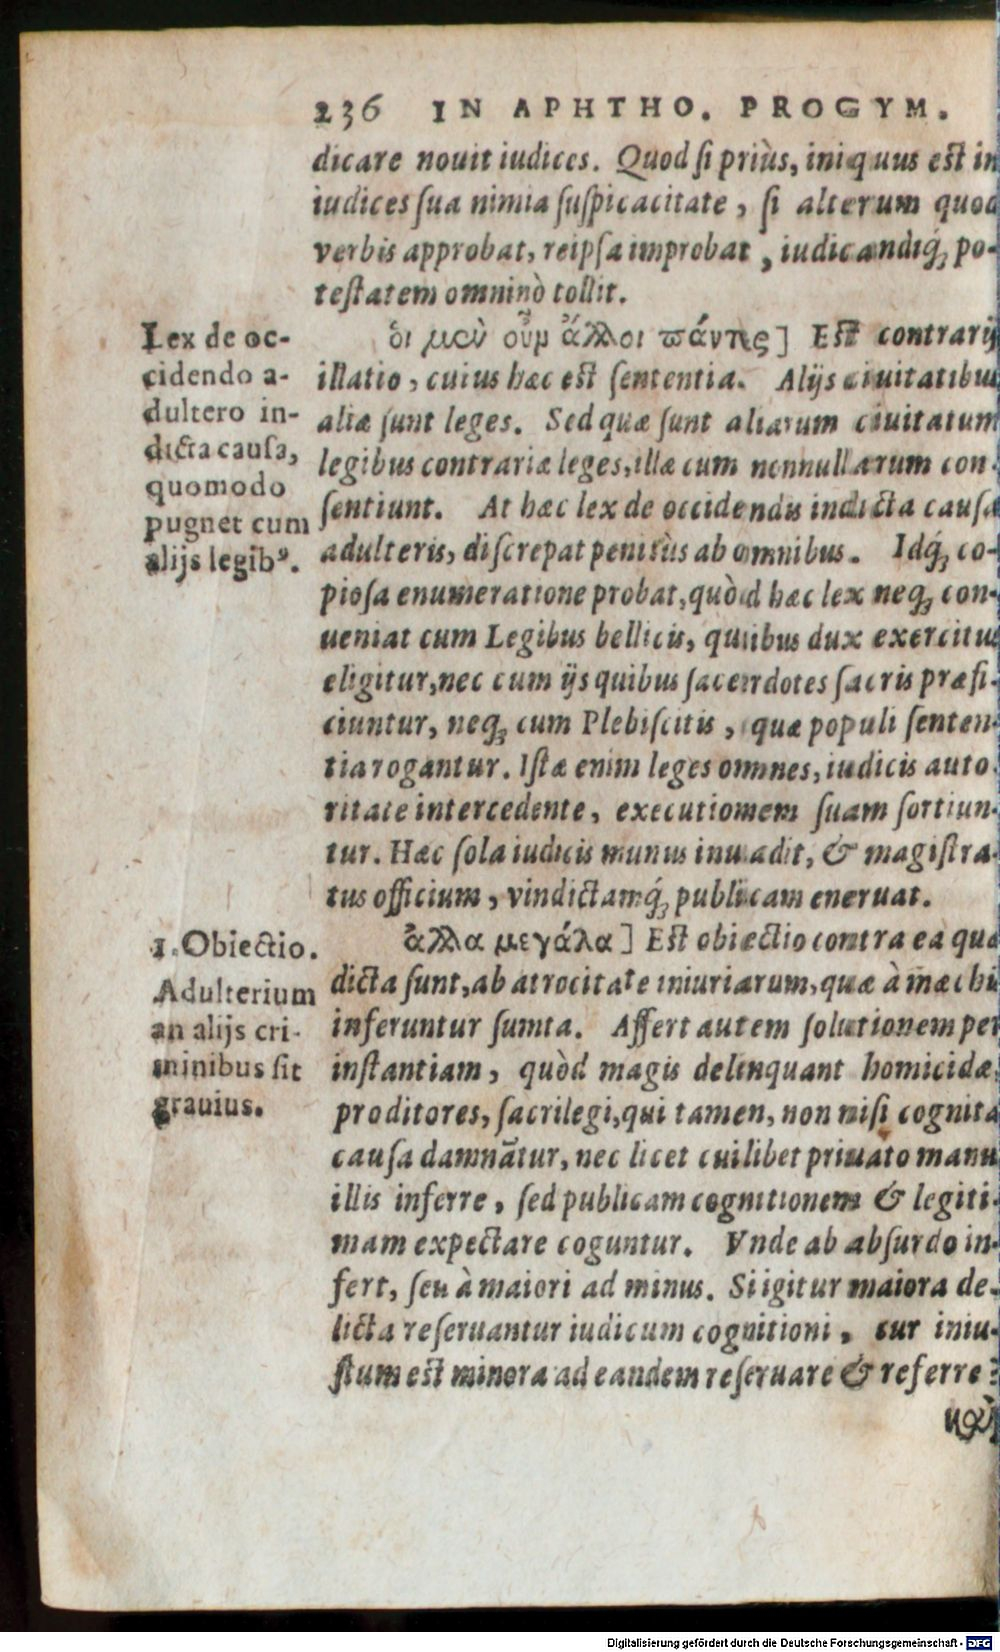 236 IN APHTHO. PROGYM.
dicare nouit iudices. Quod si priùs, iniquus est in
iudices sua nimia suspicacitate, si alterum quod
verbis approbat, reipsa improbat, iudicandiq́; po-
testatem omninò tollit.
οἱ μὲν οὖν ἄλλοι πάντες] Est contrarij
illatio, cuius hæc est sententia. Alijs ciuitatibus
aliæ sunt leges. Sed quæ sunt aliarum ciuitatum
legibus contrariæ leges, illæ cum nonnullarum con-
sentiunt. At hæc lex de occidendis indicta causa
adulteris, discrepat penitùs ab omnibus. Idq́; co-
piosa enumeratione probat, quòd hæc lex neq; con-
ueniat cum Legibus bellicis, quibus dux exercitus
eligitur, nec cum ijs quibus sacerdotes sacris præfi-
ciuntur, neq; cum Plebiscitis, quæ populi senten-
tia rogantur. Istæ enim leges omnes, iudicis auto-
ritate intercedente, executionem suam sortiun-
tur. Hæc sola iudicis munus inuadit, & magistra-
tus officium, vindictamq́; publicam eneruat.
ἀλλα μεγάλα] Est obiectio contra ea quæ
dicta sunt, ab atrocitate iniuriarum, quæ à mœchis
inferuntur sumta. Affert autem solutionem per
instantiam, quòd magis delinquant homicidæ,
proditores, sacrilegi, qui tamen, non nisi cognita
causa damnãtur, nec licet cuilibet priuato manus
illis inferre, sed publicam cognitionem & legiti-
mam expectare coguntur. Vnde ab absurdo in-
fert, seu à maiori ad minus. Si igitur maiora de-
licta reseruantur iudicum cognitioni, cur iniu-
stum est minora ad eandem reseruare & referre?
καὶ
Lex de oc-
cidendo a-
dultero in-
dicta causa,
quomodo
pugnet cum
alijs legibꝰ.
1. Obiectio.
Adulterium
an alijs cri-
minibus sit
grauius.
Digitalisierung gefördert durch die Deutsche Forschungsgemeinschaft - DFG